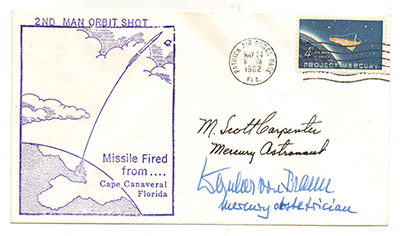 2ND MAN ORBIT SHOT
PATRICK AIR FORCE BASE
MAY 24
1962
FLA.
4¢
PROJECT MERCURY
Missile Fired
from ....
Cape Canaveral
Florida
M. Scott Carpenter
Mercury Astronaut
Wernher von Braun
Mercury obstetrician